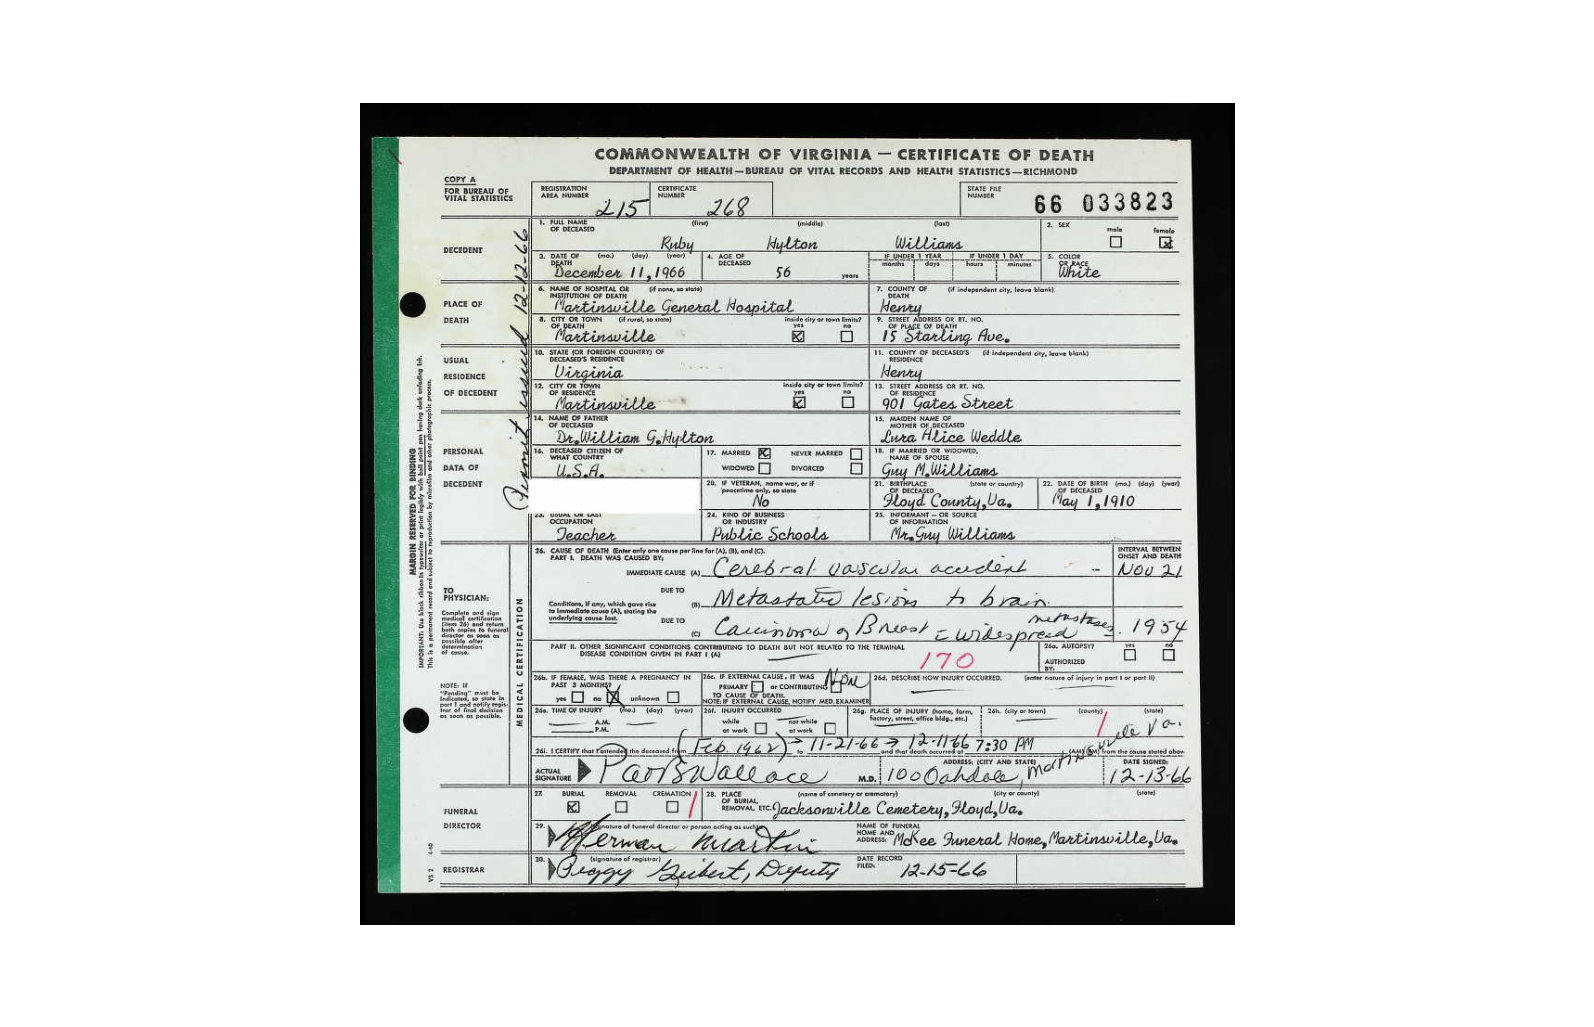 COMMONWEALTH OF VIRGINIA — CERTIFICATE OF DEATH
DEPARTMENT OF HEALTH—BUREAU OF VITAL RECORDS AND HEALTH STATISTICS—RICHMOND
COPY A
FOR BUREAU OF
VITAL STATISTICS
REGISTRATION AREA NUMBER 215
CERTIFICATE NUMBER 268
STATE FILE NUMBER 66 033823
DECEDENT
1. FULL NAME OF DECEASED (first) (middle) (last)
Ruby Hylton Williams
2. SEX male female
3. DATE OF DEATH (mo.) (day) (year)
December 11, 1966
4. AGE OF DECEASED 56 years
IF UNDER 1 YEAR months days
IF UNDER 1 DAY hours minutes
5. COLOR OR RACE
White
PLACE OF
DEATH
6. NAME OF HOSPITAL OR INSTITUTION OF DEATH (if none, so state)
Martinsville General Hospital
7. COUNTY OF DEATH (if independent city, leave blank)
Henry
8. CITY OR TOWN OF DEATH (if rural, so state) inside city or town limits? yes no
Martinsville
9. STREET ADDRESS OR RT. NO. OF PLACE OF DEATH
15 Starling Ave.
USUAL
RESIDENCE
OF DECEDENT
10. STATE (OR FOREIGN COUNTRY) OF DECEASED'S RESIDENCE
Virginia
11. COUNTY OF DECEASED'S RESIDENCE (if independent city, leave blank)
Henry
12. CITY OR TOWN OF RESIDENCE inside city or town limits? yes no
Martinsville
13. STREET ADDRESS OR RT. NO. OF RESIDENCE
901 Gates Street
PERSONAL
DATA OF
DECEDENT
14. NAME OF FATHER OF DECEASED
Dr. William G. Hylton
15. MAIDEN NAME OF MOTHER OF DECEASED
Lura Alice Weddle
16. DECEASED CITIZEN OF WHAT COUNTRY
U.S.A.
17. MARRIED NEVER MARRIED
WIDOWED DIVORCED
18. IF MARRIED OR WIDOWED, NAME OF SPOUSE
Guy M. Williams
20. IF VETERAN, name war, or if peacetime only, so state
No
21. BIRTHPLACE OF DECEASED (state or country)
Floyd County, Va.
22. DATE OF BIRTH OF DECEASED (mo.) (day) (year)
May 1, 1910
23. USUAL OR LAST OCCUPATION
Teacher
24. KIND OF BUSINESS OR INDUSTRY
Public Schools
25. INFORMANT — OR SOURCE OF INFORMATION
Mr. Guy Williams
Permit issued 12-12-66
MARGIN RESERVED FOR BINDING
MEDICAL CERTIFICATION
TO
PHYSICIAN:
Complete and sign medical certification (item 26) and return both copies to funeral director as soon as possible after determination of cause.
NOTE: If "Pending" must be indicated, so state in part I and notify registrar of final decision as soon as possible.
26. CAUSE OF DEATH (Enter only one cause per line for (A), (B), and (C).
PART I. DEATH WAS CAUSED BY:
INTERVAL BETWEEN ONSET AND DEATH
IMMEDIATE CAUSE (A) Cerebral vascular accident – Nov 21
Conditions, if any, which gave rise to immediate cause (A), stating the underlying cause last.
DUE TO (B) Metastatic lesions to brain
DUE TO (C) Carcinoma of Breast widespread metastases. 1954
PART II. OTHER SIGNIFICANT CONDITIONS CONTRIBUTING TO DEATH BUT NOT RELATED TO THE TERMINAL DISEASE CONDITION GIVEN IN PART I (A)
170
26a. AUTOPSY? yes no
AUTHORIZED BY:
26b. IF FEMALE, WAS THERE A PREGNANCY IN PAST 3 MONTHS?
yes no unknown
26c. IF EXTERNAL CAUSE, IT WAS
PRIMARY or CONTRIBUTING
TO CAUSE OF DEATH.
NOTE: IF EXTERNAL CAUSE, NOTIFY MED. EXAMINER
26d. DESCRIBE HOW INJURY OCCURRED. (enter nature of injury in part I or part II)
26e. TIME OF INJURY (mo.) (day) (year)
A.M.
P.M.
26f. INJURY OCCURRED
while at work not while at work
26g. PLACE OF INJURY (home, farm, factory, street, office bldg., etc.)
26h. (city or town) (county) (state)
26i. I CERTIFY that I attended the deceased from (Feb. 1962) → 11-21-66 to → 12-11-66 and that death occurred at 7:30 PM (AM) (PM) from the cause stated above
ACTUAL SIGNATURE Wallace M.D.
ADDRESS: (CITY AND STATE)
100 Oakdale, Martinsville Va.
DATE SIGNED:
12-13-66
FUNERAL
DIRECTOR
27. BURIAL REMOVAL CREMATION
28. PLACE OF BURIAL, REMOVAL, ETC. (name of cemetery or crematory) (city or county) (state)
Jacksonville Cemetery, Floyd, Va.
29. (signature of funeral director or person acting as such)
Herman Martin
NAME OF FUNERAL HOME AND ADDRESS: McKee Funeral Home, Martinsville, Va.
REGISTRAR
30. (signature of registrar)
Peggy Deputy
DATE RECORD FILED: 12-15-66
VS 2